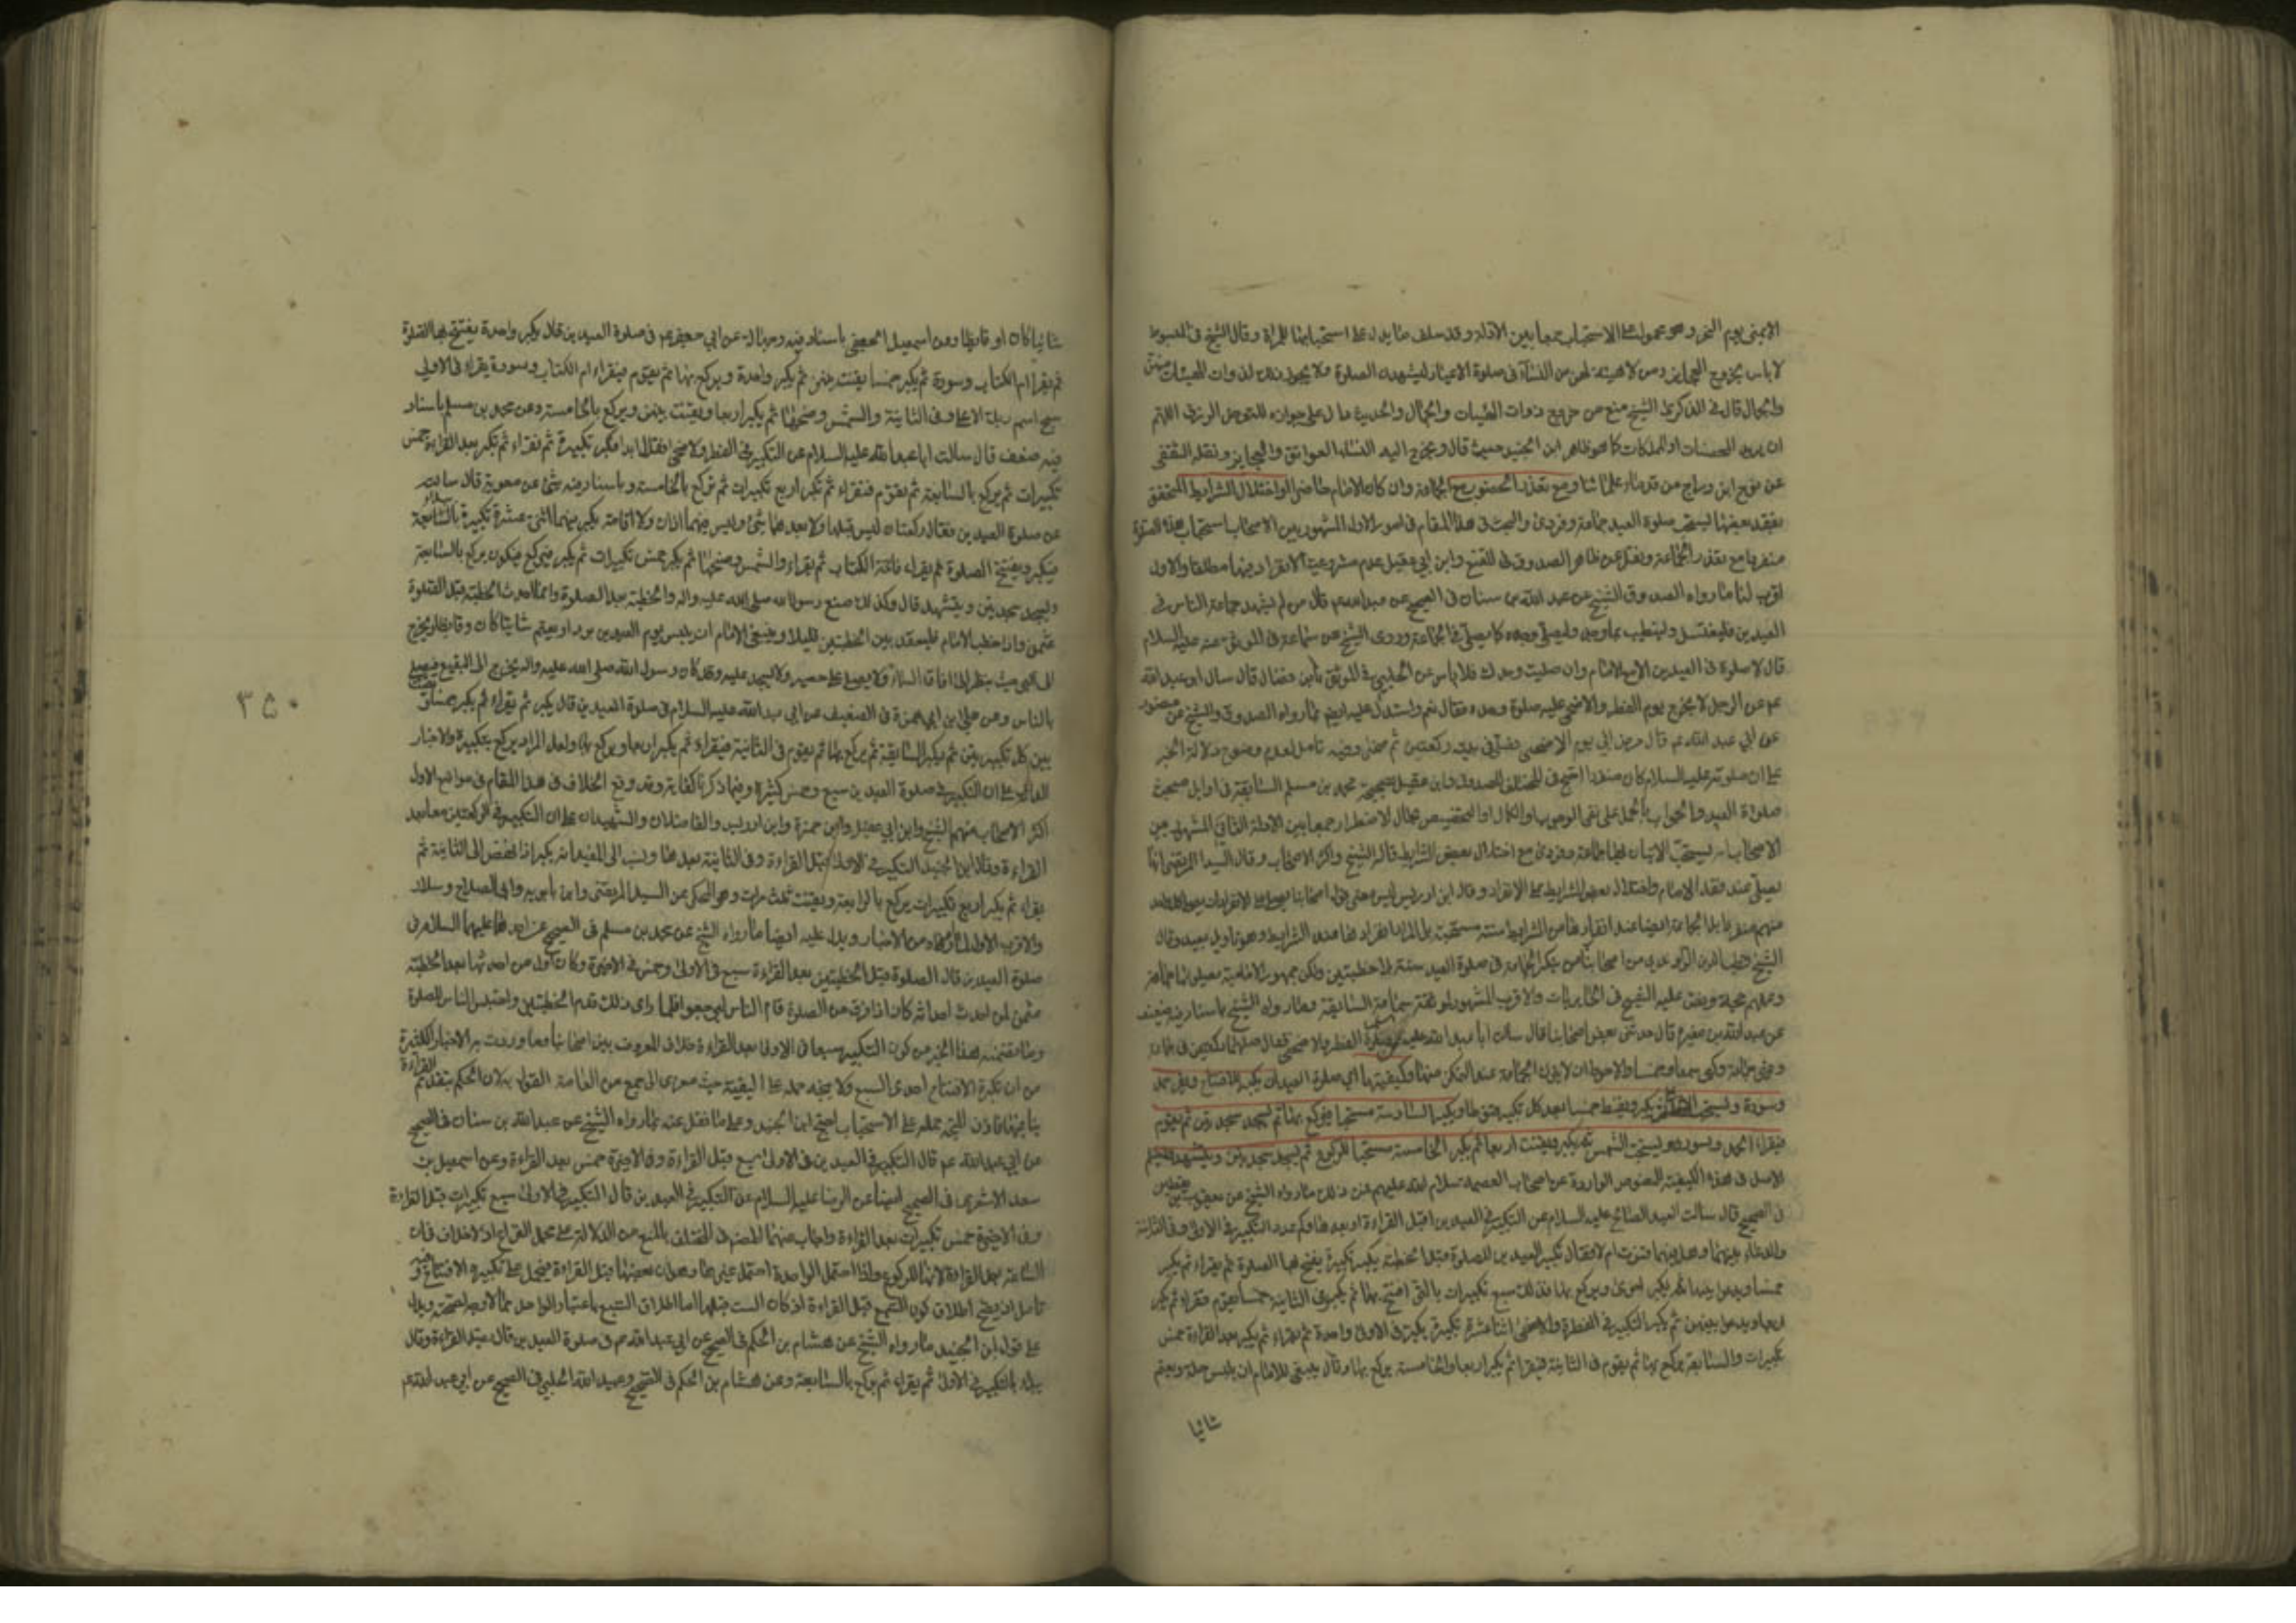 الا بمنى يوم النحر وهو محمول على الاستحباب جمعا بين الادلة وقد سلف ما يدل على استحبابها للمراة وقال الشيخ في المبسوط
لا باس بخروج العجايز ومن لا هيئة لهن من النساء في صلوة الاعياد ليشهدن الصلوة ولا يجوز ذلك لذوات الهيئات منهن
والجمال قال في الذكرى الشيخ منع من خروج ذوات الهيئات والجمال والحديث دال على جوازه للتعرض للرزق اللهم
ان يريد المحصنات او المملكات كما هو ظاهر ابن الجنيد حيث قال ويخرج اليه النساء العواتق والعجايز ونقله الثقفي
عن نوح ابن دراج من قدماء علمائنا ومع تعذر الحضور مع الجماعة وان كان الامام حاضرا او اختلال الشرايط المتحقق
بفقد بعضها يستحب صلوة العيد جماعة وفرادى والبحث في هذا المقام في امور الاول المشهور بين الاصحاب استحباب هذه الصلوة
منفردا مع تعذر الجماعة ونقل عن ظاهر الصدوق في المقنع وابن ابي عقيل عدم مشروعية الانفراد فيها مطلقا والاول
اقرب لنا ما رواه الصدوق الشيخ عن عبد الله بن سنان في الصحيح عن عبد الله عم قال من لم يشهد جماعة الناس في
العيدين فليغتسل وليتطيب بما وجد وليصل وحده كما يصلي في الجماعة وروى الشيخ عن سماعة في الموثق عنه عليه السلام
قال لا صلوة في العيدين الا مع الامام وان صليت وحدك فلا باس عن الحلبي في الموثق بابن فضال قال سال ابو عبد الله
عم عن الرجل لا يخرج يوم الفطر والاضحى عليه صلوة وحده فقال نعم واستدل عليه ايضا بما رواه الصدوق والشيخ عن منصور
عن ابي عبد الله عم قال مرض ابي يوم الاضحى فصلى في بيته ركعتين ثم ضحى وفيه تامل لعدم وضوح دلالة الخبر
على ان صلوته عليه السلام كان منفردا احتج في المختلف للصدوق وابن عقيل بصحيحة محمد بن مسلم السابقة في اوايل مبحث
صلواة العيد والجواب بالحمل على نفي الوجوب او الكمال او التخصيص بحال الاضطرار جمعا بين الادلة الثاني المشهور بين
الاصحاب انه يستحب الاتيان بها جماعة وفرادى مع اختلال بعض الشرايط قاله الشيخ واكثر الاصحاب وقال السيد المرتضى انها
يصلي عند فقد الامام واختلال بعض الشرايط على الانفراد وقال ابن ادريس ليس معنى قول اصحابنا يصلي على الانفراد
الشيخ قطب الدين الراوندي من اصحابنا من ينكر الجماعة في صلوة العيد سنة بلا خطبتين ولكن جمهور الامامية يصلونها جماعة
وعملهم حجة ونص عليه الشيخ في الحايريات والاقرب المشهور لموثقة سماعة السابقة وما رواه الشيخ باسناد فيه ضعف
عن عبد الله بن مغيرة قال حدثني بعض اصحابنا قال سالت ابا عبد الله عليه السلام عن صلوة الفطر والاضحى فقال صلهما ركعتين في جماعة
وغير جماعة وكبر سبعا وخمسا والاحوط ان لا يترك الجماعة عند التمكن منها وكيفيتها اي صلوة العيد ان يكبر للافتتاح ويقرا الحمد
وسورة ويستحب الاعلى ثم يكبر ويقنت خمسا بعد كل تكبير قنوتا ويكبر السادسة مستحبا فيركع بها ثم يسجد سجدتين ثم يقوم
فيقرا الحمد وسورة ويستحب الشمس ثم يكبر ويقنت اربعا ثم يكبر الخامسة مستحبا للركوع ثم يسجد سجدتين ويتشهد ويسلم
الاصل في هذه الكيفية النصوص الواردة عن اصحاب العصمة سلام الله عليهم فمن ذلك ما رواه الشيخ عن يعقوب بن يقطين
في الصحيح قال سالت العبد الصالح عليه السلام عن التكبير في العيدين اقبل القراءة او بعدها وكم عدد التكبير في الاولى وفي الثانية
والدعاء بينهما وهل فيهما قنوت ام لا فقال تكبير العيدين للصلوة قبل الخطبة يكبر تكبيرة يفتتح بها الصلوة ثم يقراء ثم يكبر
خمسا ويدعوا بينها ثم يكبر اخرى ويركع بها فذلك سبع تكبيرات بالتي افتتح بها ثم يكبر في الثانية خمسا يقوم فيقراء ثم يكبر
اربعا ويدعوا بينهن ثم يكبر التكبير في الفطر والاضحى اثنا عشرة تكبيرة يكبر في الاولى واحدة ثم يقراء ثم يكبر بعد القراءة خمس
تكبيرات والسابعة يركع بها ثم يقوم في الثانية فيقرا ثم يكبر اربعا والخامسة يركع بها وقال ينبغي للامام ان يلبس حلة ويعتم
شاتيا
شاتيا كان او قايظا وعن اسمعيل الجعفي باسناد فيه وجهالة عن ابي جعفر عم في صلوة العيدين قال يكبر واحدة يفتتح بها الصلوة
ثم يقرا ام الكتاب وسورة ثم يكبر خمسا يقنت بينهن ثم يكبر واحدة ويركع بها ثم يقوم فيقراء ام الكتاب وسورة يقراء في الاولى
سبح اسم ربك الاعلى وفي الثانية والشمس وضحيها ثم يكبر اربعا ويقنت بينهن ويركع بالخامسة وعن محمد بن مسلم باسناد
فيه ضعف قال سالت ابا عبد الله عليه السلام عن التكبير في الفطر والاضحى فقال ابدا فكبر تكبيرة ثم تقراء ثم تكبر بعد القراءة خمس
تكبيرات ثم يركع بالسابعة ثم يقوم فتقراء ثم تكبر اربع تكبيرات ثم تركع بالخامسة وباسناد فيه شئ عن معوية قال سالته
عن صلوة العيدين فقال ركعتان ليس قبلها ولا بعدهما شئ وليس فيهما اذان ولا اقامة يكبر فيهما اثنتي عشرة تكبيرة
فيكبر ويفتتح الصلوة ثم يقراء فاتحة الكتاب ثم يقراء والشمس وضحيها ثم يكبر خمس تكبيرات ثم يكبر فيركع فيكون يركع بالسابعة
ويسجد سجدتين ويتشهد قال وكذلك صنع رسول الله صلى الله عليه واله والخطبة بعد الصلوة وانما احدث الخطبة قبل الصلوة
عثمن واذا خطب الامام فليقعد بين الخطبتين قليلا وينبغي الامام ان يلبس يوم العيدين برد او يعتم شاتيا كان وقايظا ويخرج
الى البر حيث ينظر الى افاق السماء ولا يصلي على حصير ولا يسجد عليه وقد كان رسول الله صلى الله عليه واله يخرج الى البقيع فيصلي
بالناس وعن علي بن ابي حمزة في الضعيف عن ابي عبد الله عليه السلام في صلوة العيدين قال يكبر ثم يقراء ثم يكبر خمسا ويقنت
بين كل تكبيرتين ثم يكبر السابعة ثم يركع بها ثم يقوم في الثانية فيقراء ثم يكبر اربعا ويركع بها ولعل المراد يركع بتكبيرة والاخبار
الدالة على ان التكبير في صلوة العيدين سبع وخمس كثيرة وفيما ذكرنا كفاية وقد وقع الخلاف في هذا المقام في مواضع الاول
اكثر الاصحاب منهم الشيخ وابن ابي عقيل وابن حمزة وابن ادريس والفاضلان والشهيدان على ان التكبير في الركعتين معا بعد
القراءة وقال ابن الجنيد التكبير في الاولى قبل القراءة وفي الثانية بعدها ونسب الى المفيد انه يكبر اذا نهض الى الثانية ثم
يقراء ثم يكبر اربع تكبيرات يركع بالرابعة ويقنت ثلث مرات وهو المحكي عن السيد المرتضى وابن بابويه وابي الصلاح وسلار
والاقرب الاول لما مر من الاخبار ويدل عليه ايضا ما رواه الشيخ عن محمد بن مسلم في الصحيح عن احدهما عليهما السلام في
صلوة العيدين قال الصلوة قبل الخطبتين بعد القراءة سبع في الاولى وخمس في الاخيرة وكان اول من احدثها بعد الخطبة
عثمن لما احدث احداثه كان اذا فرغ من الصلوة قام الناس ليرجعوا فلما راى ذلك قدم الخطبتين واحتبس الناس للصلوة
وما تضمنه هذا الخبر من كون التكبير سبعا في الاولى بعد القراءة خلاف المعروف بين اصحابنا وما وردت به الاخبار الكثيرة
من ان تكبيرة الافتتاح احدى السبع ولا يتجه حمله على التقية حيث معزى الى جمع من العامة القول به لان الحكم بتقدم القراءة
ينافيها فاذن المتجه حمله على الاستحباب احتج ابن الجنيد وعلى ما نقل عنه بما رواه الشيخ عن عبد الله بن سنان في الصحيح
عن ابي عبد الله عم قال التكبير في العيدين في الاولى سبع قبل القراءة وفي الاخيرة خمس بعد القراءة وعن اسمعيل بن
سعد الاشعري في الصحيح ايضا عن الرضا عليه السلام عن التكبير في العيدين قال التكبير في الاولى سبع تكبيرات قبل القراءة
وفي الاخيرة خمس تكبيرات بعد القراءة واجاب عنهما المصنف في المختلف بالمنع من الدلالة على محل النزاع اذ لا خلاف فان
السابعة بعد القراءة لانها للركوع واذا احتمل الواحدة احتمل غيرها وهو ان بعضها قبل القراءة فيحمل على تكبيرة الافتتاح وفيه
تامل اذ يصح اطلاق كون السبع قبل القراءة اذ كان الست قبلها اما اطلاق السبع باعتبار الواحد مما لا وجه لصحته ويدل
على قول ابن الجنيد ما رواه الشيخ عن هشام بن الحكم في الصحيح عن ابي عبد الله عم في صلوة العيدين قال يصل القراءة وقال
يبداء بالتكبير في الاولى ثم يقراء ثم يركع بالسابعة وعن هشام بن الحكم في الصحيح وعبيد الله الحلبي في الصحيح عن ابي عبد الله عم
٣٥٠